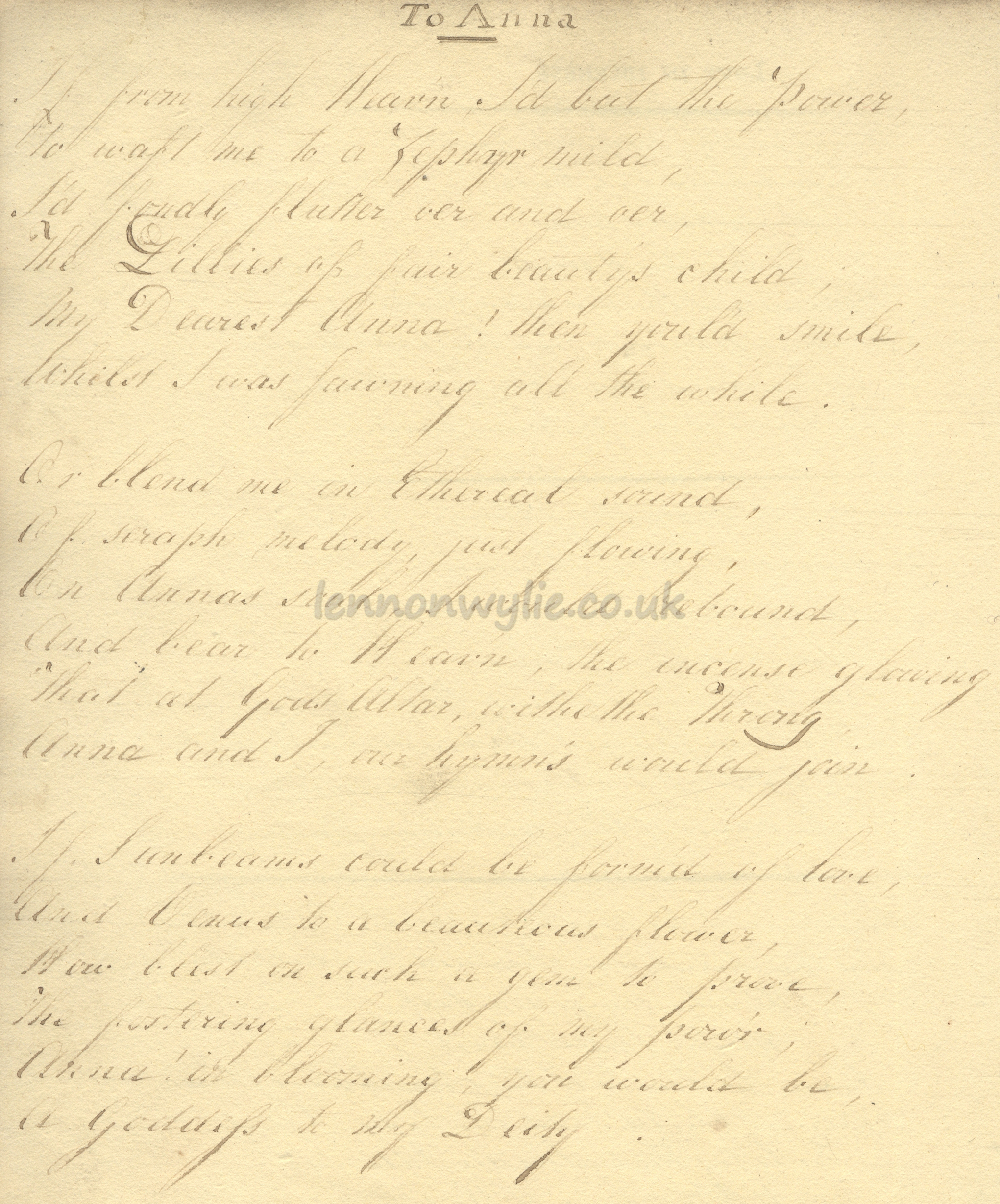 To Anna
If from high Heav'n I'd but the Power,
To waft me to a Zephyr mild,
I'd fondly flutter o'er and o'er,
The Lillies of fair beauty's child ;
My Dearest Anna ! then you'ld smile,
Whilst I was fawning all the while .
Or blend me in Ethereal sound,
Of seraph melody, just flowing,
On Annas rebound,
lennonwylie.co.uk
And bear to Heav'n, the incense glowing
That at Gods Altar, withe the Throng
Anna and I, our hymns would join .
If Sunbeams could be form'd of love,
And Venus to a beauteous flower,
How blest on such a gem to prove,
The fostering glances of my pow'r ;
Anna! in blooming, you would be,
A Goddess to my Deity .